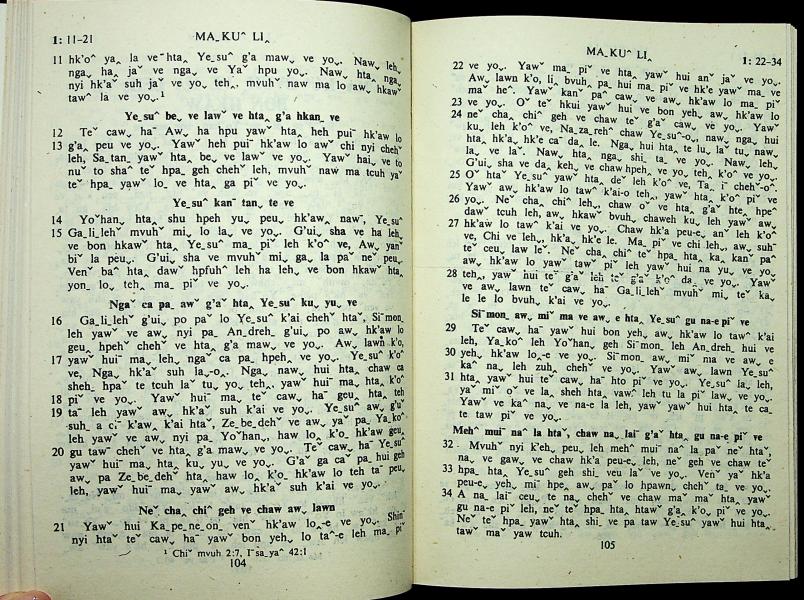 1: 11-21
MA_KUˆ LI‸
11 hk'oˆ ya‸ la veˉhta‸ Ye_suˆ g'a mawˬ ve yoˬ. Nawˬ leh‸
ngaˬ ha‸ jaˇ ve ngaˬ ve Yaˇ hpu yoˬ. Nawˬ hta‸ nga‸
nyi hk'aˇ suh jaˇ ve yoˬ teh‸, mvuhˇ naw ma lo awˬ hkawˇ
tawˆ la ve yoˬ.¹
Ye_suˆ be‸ ve lawˇ ve hta‸ g'a hkan‸ ve
12 Teˇ cawˬ haˉ Awˬ ha hpu yawˇ hta‸ heh puiˉ hk'aw lo
13 g'a‸ peu ve yoˬ. Yawˇ heh puiˉ hk'aw lo awˇ chi nyi chehˇ
leh, Sa_tan_ yawˇ hta‸ be‸ ve lawˇ ve yoˬ. Yawˇ haiˬ ve to
nuˇ to shaˉ teˇ hpa_ geh chehˇ leh, mvuhˇ naw ma tcuh yaˇ
teˇ hpa_ yawˇ lo‸ ve hta‸ ga piˇ ve yoˬ.
Ye_suˆ kanˉ tan‸ te ve
14 Yoˇhan‸ hta‸ shu hpeh yu‸ peu‸ hk'awˬ nawˉ, Ye_suˆ
15 Ga_li_lehˇ mvuhˇ mi‸ lo la‸ ve yoˬ. G'ui‸ sha ve ha leh‸
ve bon hkawˇ hta‸ Ye_suˆ ma_ piˇ leh k'oˆ ve, Awˬ yanˇ
biˇ la peu‸. G'ui‸ sha ve mvuhˇ mi‸ ga‸ la paˇ neˇ peu‸.
Venˇ baˆ hta‸ dawˇ hpfuhˆ leh ha leh‸ ve bon hkawˇ hta‸
yon_ lo‸ teh‸ ma_ piˇ ve yoˬ.
Ngaˇ ca pa_ awˬ g'aˇ hta‸ Ye_suˆ ku‸ yu‸ ve
16 Ga_li_lehˇ g'ui‸ po paˇ lo Ye_suˆ k'ai cheh htaˇ, Siˆmon_
leh yawˇ ve awˬ nyi pa_ An_drehˬ g'ui‸ po awˬ hk'aw lo
geu‸ hpehˇ chehˇ ve hta‸ g'a mawˬ ve yoˬ. Awˬ lawn k'o,
17 yawˇ huiˉ maˬ leh, ngaˇ ca pa_ hpehˬ ve yoˬ. Ye_suˆ k'oˆ
ve, Ngaˬ hk'aˇ suh la_-o‸. Ngaˬ naw‸ hui hta‸ chaw ca
sheh_ hpaˇ te tcuh laˇ tu‸ yoˬ teh‸, yawˇ huiˉ ma‸ hta‸ k'oˆ
18 piˇ ve yoˬ. Yawˇ huiˉ ma‸ teˇ cawˬ haˉ geu‸ hta‸ teh
19 taˇ leh yawˇ awˬ hk'aˇ suh k'ai ve yoˬ. Ye_suˆ awˬ g'uˇ
suh_ a ciˉ k'awˬ k'ai htaˇ, Ze_be_dehˇ ve awˬ yaˇ pa_ Ya_koˆ
leh yawˇ ve awˬ nyi pa_ Yoˇhan‸, haw lo‸ k'o‸ hk'aw lo geu‸
20 gu tawˉ chehˇ ve hta‸ g'a mawˬ ve yoˬ. Teˇ cawˬ haˉ Ye_suˆ
yawˇ huiˉ ma‸ hta‸ ku‸ yu‸ ve yoˬ. G'aˇ ga caˇ pa_ hui geh
awˬ pa Ze_be_dehˇ hta‸ haw lo‸ k'o‸ hk'aw lo teh taˇ peu‸
leh, yawˇ huiˉ maˬ yawˇ awˬ hk'aˇ suh k'ai ve yoˬ.
Neˇ cha‸ chiˆ geh ve chaw awˬ lawn
21 Yawˇ hui Ka_pe_ne_on_ venˇ hk'aw lo‸-e ve yoˬ. Shinˉ
nyi htaˇ teˇ cawˬ haˉ yawˇ bon yehˬ lo taˆ-e leh ma_ piˇ
¹ Chiˇ mvuh 2:7, Iˆsa_yaˆ 42:1
104
MA_KUˆ LI‸
1: 22-34
22 ve yoˬ. Yawˇ ma_ piˇ ve hta‸ yawˇ hui anˇ jaˇ ve yoˬ.
Awˬ lawn k'o, li‸ bvuh_ pa_ hui ma_ piˇ ve hk'e yawˇ ma_ ve
maˇ heˆ. Yawˇ kanˇ paˆ cawˬ ve awˬ hk'aw lo ma_ piˇ
23 ve yoˬ. Oˇ teˇ hkui yawˇ hui ve bon yehˬ awˬ hk'aw lo
24 neˇ cha‸ chiˆ geh ve chaw teˇ g'aˇ cawˬ ve yoˬ. Yawˇ
ku‸ leh k'oˆ ve, Na_za_rehˆ chaw Ye_suˆ-o‸, nawˬ nga‸ hui
hta‸ hk'a‸ hk'e caˉ da_ le. Nga‸ hui hta‸ te lu‸ laˇ tu‸ naw‸
la‸ ve laˇ. Nawˬ hta‸ nga‸ shi‸ taˬ ve yoˬ. Nawˬ leh‸
G'ui‸ sha ve da‸ keh‸ ve chaw hpeh‸ ve yoˬ teh‸ k'oˆ ve yoˬ.
25 Oˇ htaˇ Ye_suˆ yawˇ hta‸ deˇ leh k'oˆ ve, Ta_ iˇ chehˇ-oˆ.
Yawˇ awˬ hk'aw lo tawˆ k'ai-o teh‸ yawˇ hta‸ k'oˆ piˇ ve
26 yoˬ. Neˇ cha‸ chiˆ leh‸ chaw oˇ ve hta‸ g'aˇ hte_ hpeˆ
dawˇ tcuh leh, awˬ hkawˇ bvuh‸ chawehˇ ku‸ leh yawˇ awˬ
27 hk'aw lo tawˆ k'ai ve yoˬ. Chaw hk'a peu-e‸ anˇ leh k'oˆ
ve, Chi ve leh‸ hk'a‸ hk'e le. Ma_ piˇ ve chi leh‸ awˬ suhˉ
teˇ ceu‸ law leˇ. Neˇ cha‸ chiˆ teˇ hpa_ hta‸ ka‸ kanˇ paˆ
awˬ hk'aw lo yawˇ tawˇ piˇ leh yawˇ hui na yu‸ ve yoˬ
28 teh‸ yawˇ hui teˇ g'aˇ leh teˇ g'aˇ k'oˆ da_ ve yoˬ. Yawˇ
ve awˬ lawn teˇ cawˬ haˉ Ga_li_lehˇ mvuhˇ mi‸ teˇ ka‸
le le lo bvuh‸ k'ai ve yoˬ.
Siˆmon_ awˬ miˇ ma ve awˬ e hta‸ Ye_suˆ gu na-e piˇ ve
29 Teˇ cawˬ haˉ yawˇ hui bon yehˬ awˬ hk'aw lo tawˆ k'ai
leh, Ya_koˆ leh Yoˇhan‸ geh Siˆmon_ leh An_drehˬ hui ve
30 yehˬ hk'aw lo‸-e ve yoˬ. Siˆmon_ awˬ miˇ ma ve awˬ e
kaˆ na‸ leh zuh‸ chehˇ ve yoˬ. Yawˇ awˬ lawn Ye_suˆ
31 hta‸ yawˇ hui teˇ cawˬ haˉ hto piˇ ve yoˬ. Ye_suˆ la‸ leh,
yaˇ miˇ oˇ ve la‸ sheh hta‸ vawˆ leh tu la piˇ lawˇ ve yoˬ.
Yawˇ ve kaˆ na‸ ve na-e la leh, yawˇ yawˇ hui hta‸ te ca_
te taw piˇ ve yoˬ.
Mehˆ muiˉ naˆ la htaˇ, chaw na‸ laiˉ g'aˇ hta‸ gu na-e piˇ ve
32 Mvuhˇ nyi k'eh‸ peu‸ leh mehˆ muiˉ naˆ la paˇ neˇ htaˇ,
na‸ ve gawˬ ve chaw hk'a peu-e‸ leh, neˇ geh ve chaw teˇ
33 hpa_ hta‸ Ye_suˆ geh shi_ veu‸ la ve yoˬ. Venˇ yaˇ hk'a
peu-e‸ yehˬ miˉ hpe‸ awˬ paˇ lo hpawn‸ chehˇ taˬ ve yoˬ.
34 A na_ laiˉ ceu‸ te na‸ chehˇ ve chaw maˇ maˇ hta‸ yawˇ
gu na-e piˇ leh, neˇ teˇ hpa_ hta‸ htawˇ g'a‸ k'o‸ piˇ ve yoˬ.
Neˇ teˇ hpa_ yawˇ hta‸ shi‸ ve pa taw Ye_suˆ yaw‸ hui hta‸
tawˇ maˇ yaw tcuh.
105